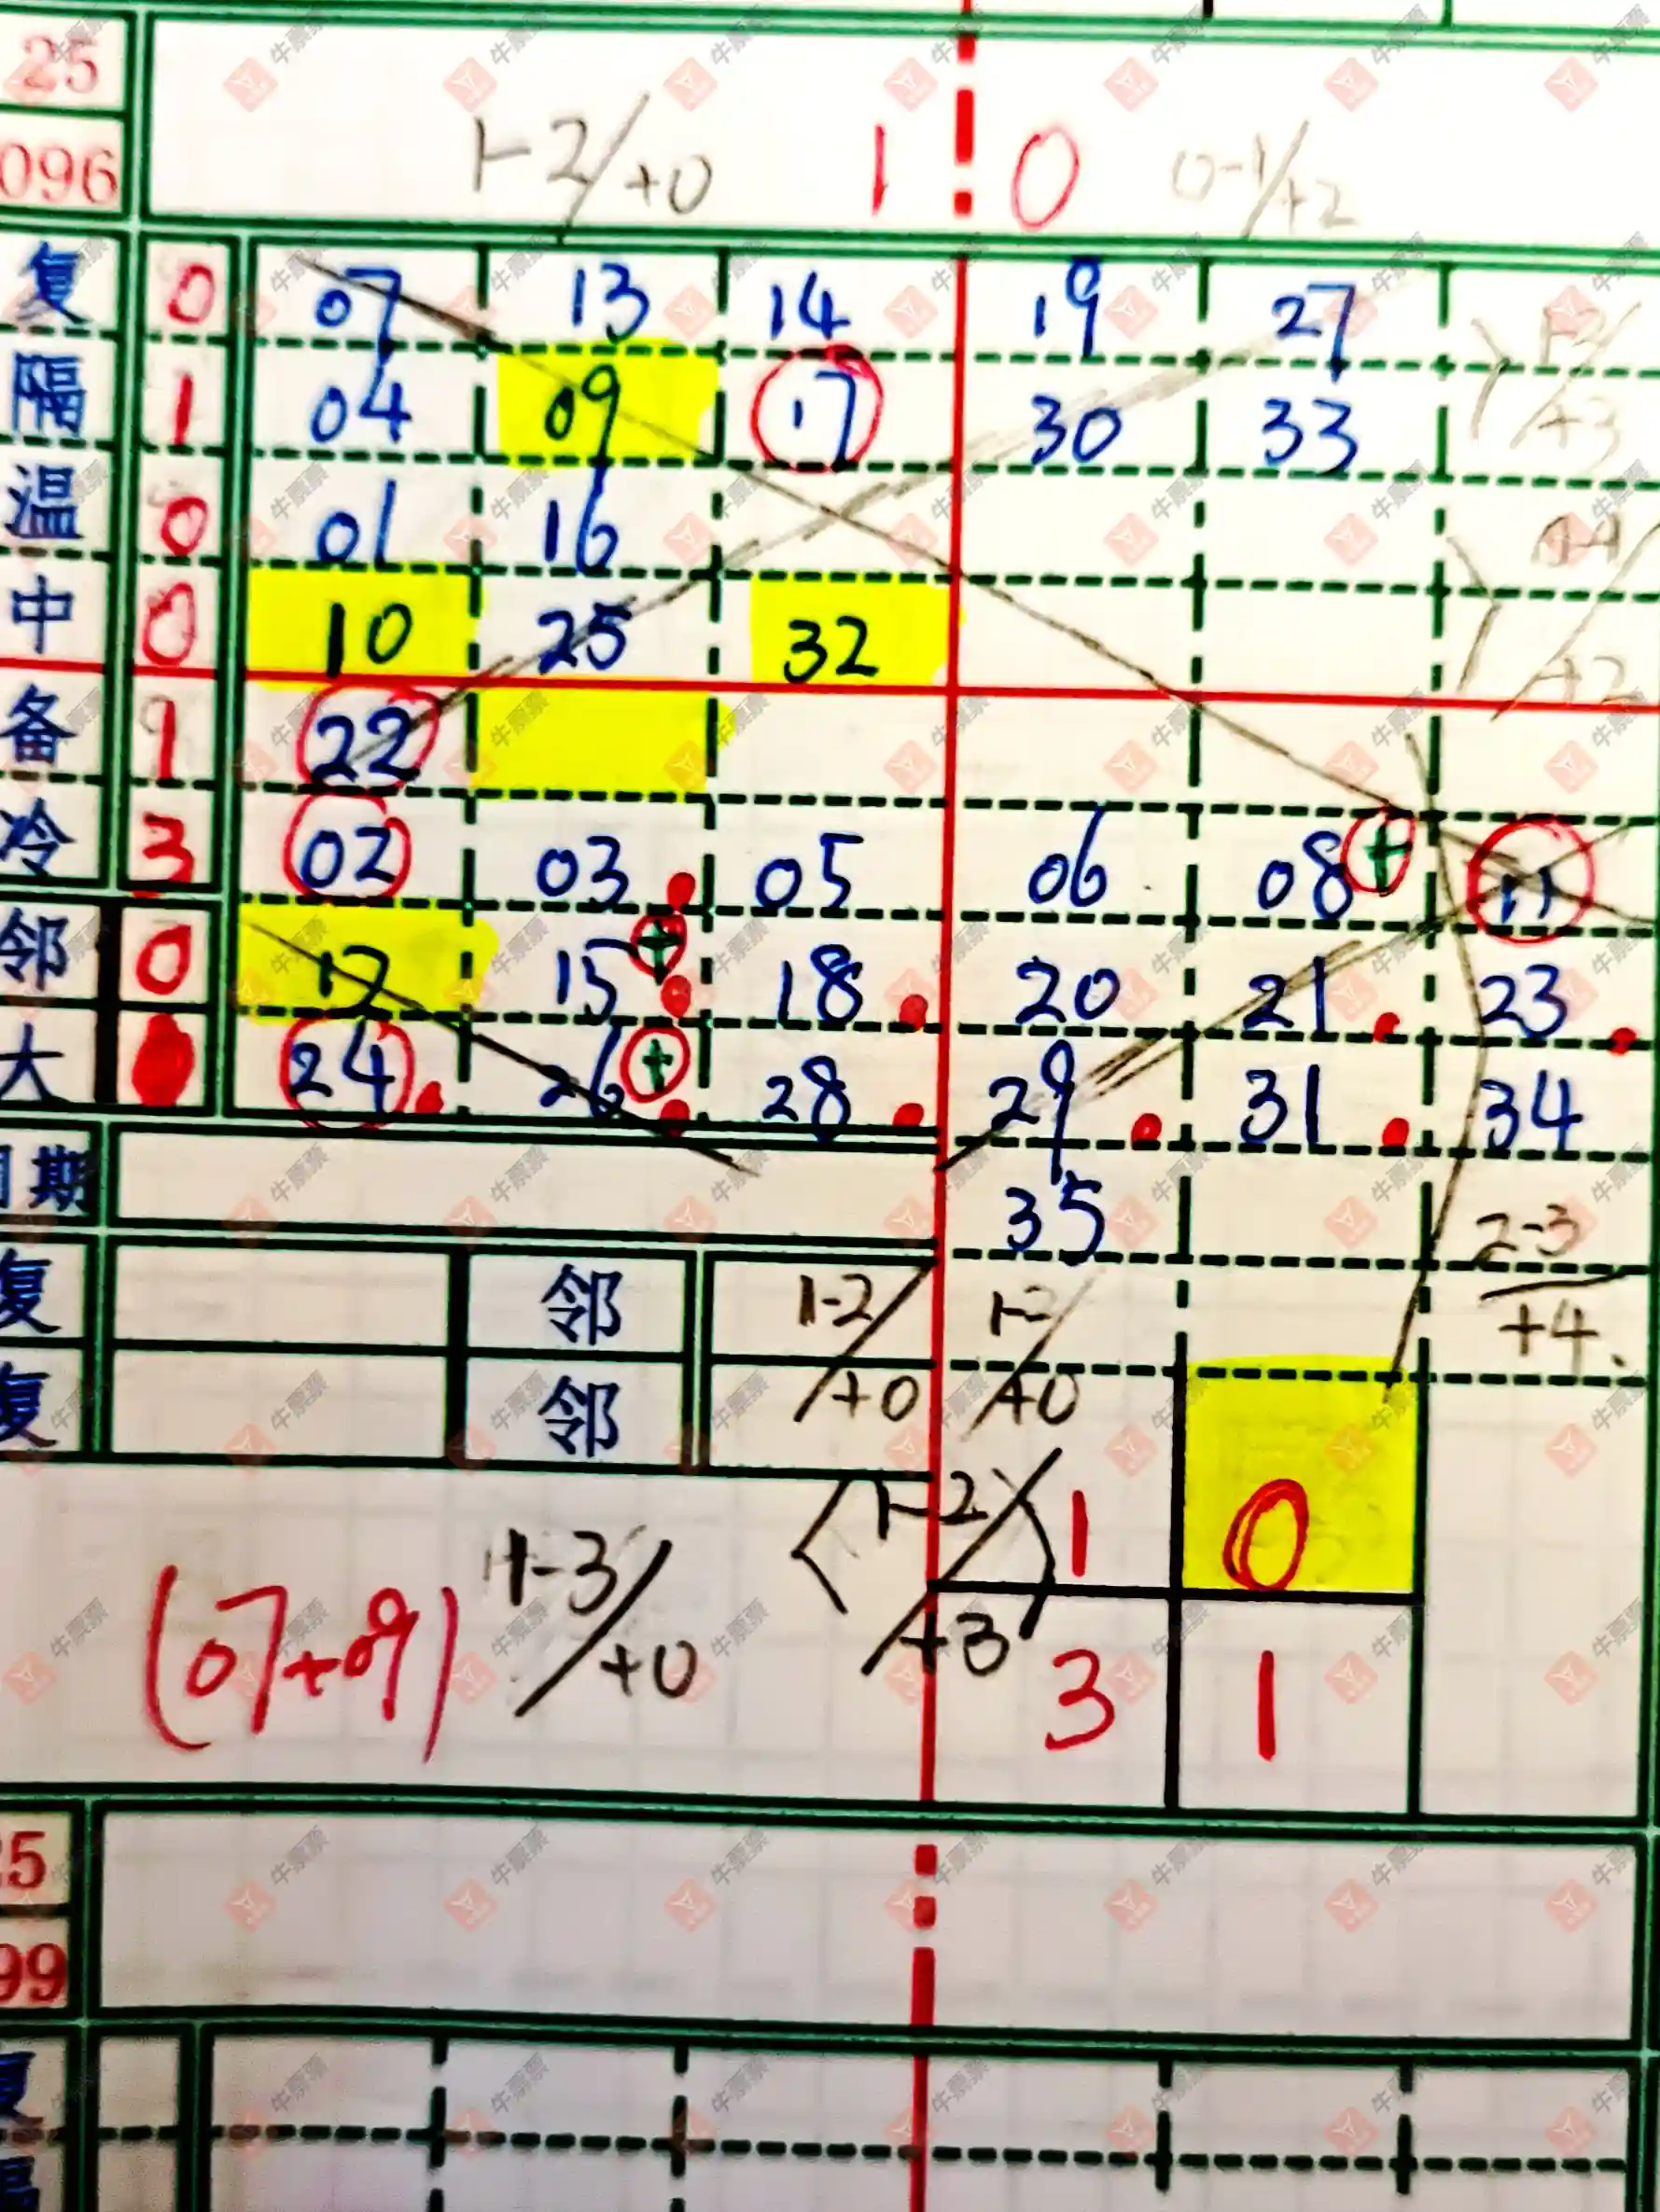 25
096 1-2/+0 1 0 0-1/+2
复 0 07 13 14 19 27 1-2/+3
隔 1 04 09 17 30 33
温 0 01 16
中 0 10 25 32 +2
备 1 22
冷 3 02 03 05 06 08 + 11
邻 0 12 15 + 18 20 21 23
大 24 26 + 28 29 31 34
期 35
复 邻 1-2/+0 1-2/+0 2-3/+4
复 邻
1-2/+3 1 0
(07+09) 1-3/+0 3 1
5
99
牛票票